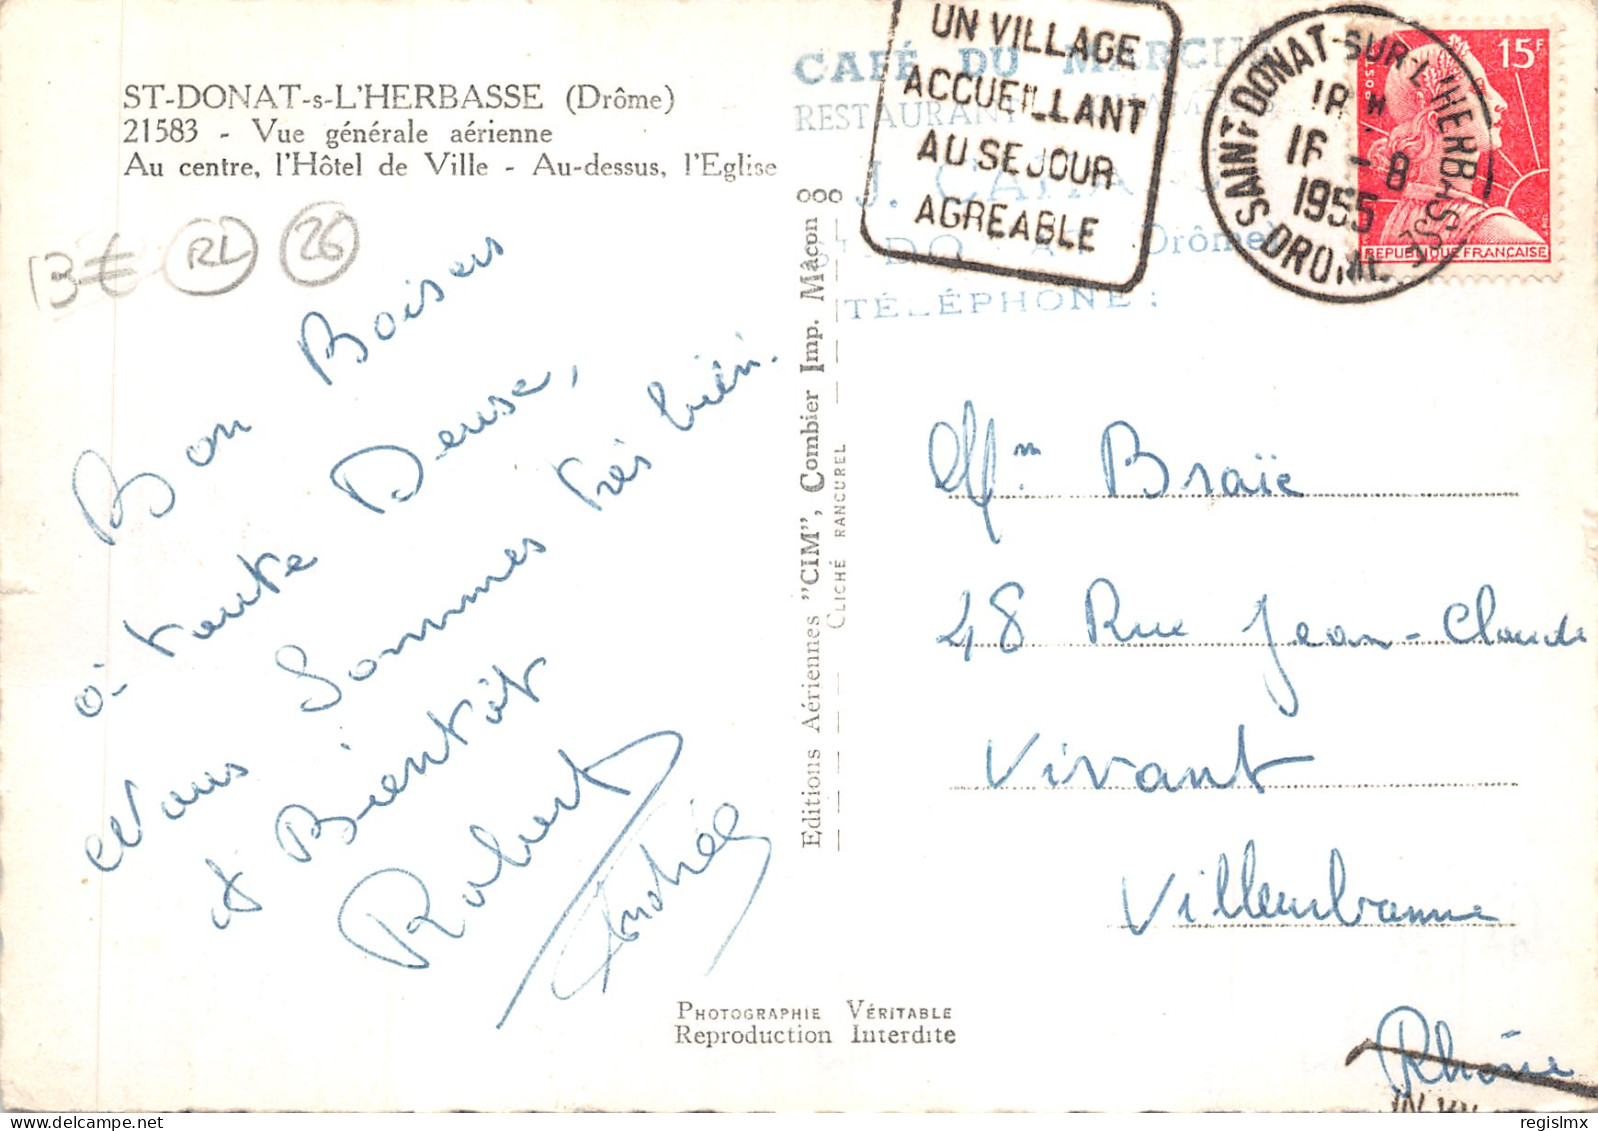 ST-DONAT-s-L'HERBASSE (Drôme)
21583 - Vue générale aérienne
Au centre, l'Hôtel de Ville - Au-dessus, l'Eglise
13 €
RL
26
Bon Baisers
à toute Denise,
Nous sommes très bien.
et Bientôt
Robert
Andrée
Editions Aériennes "CIM", Combier Imp. Mâcon
CLICHÉ RANCUREL
PHOTOGRAPHIE VÉRITABLE
Reproduction Interdite
CAFÉ DU
RESTAURANT
J.
Drôme)
TÉLÉPHONE :
UN VILLAGE
ACCUEILLANT
AU SEJOUR
AGREABLE
SAINT DONAT-SUR-L'HERBASSE
18 H
16 -8
1955
DROME
15F
POSTES
REPUBLIQUE FRANÇAISE
Mm Braïe
48 Rue Jean-Claude
Vivant
Villeurbanne
Rhône
regislmx